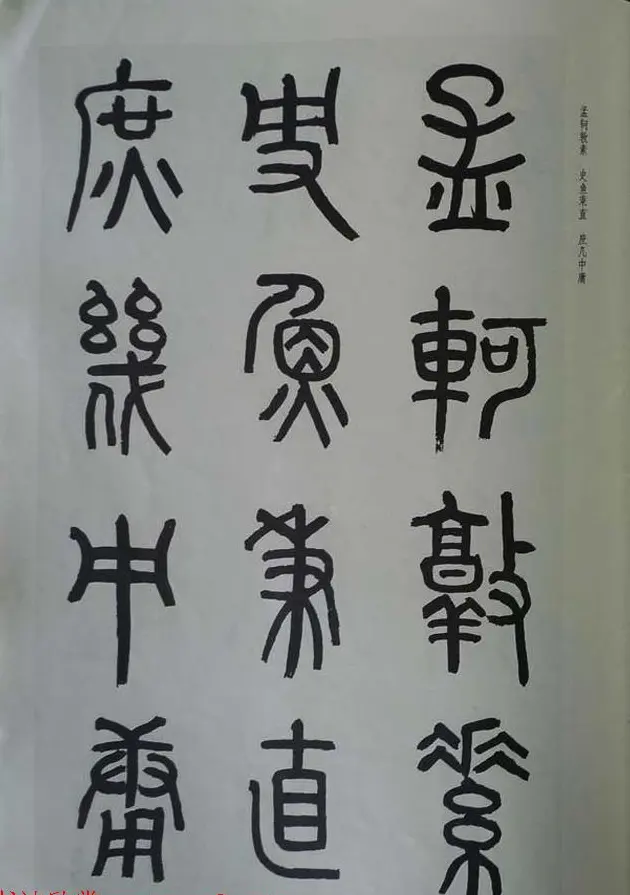 孟軻敦素
史魚秉直
庶幾中庸
孟轲敦素 史鱼秉直 庶几中庸